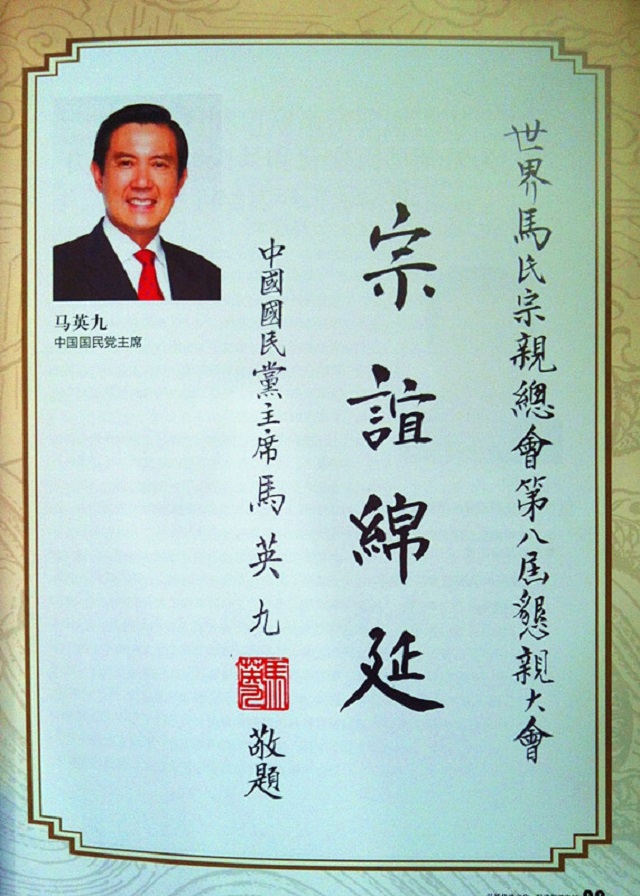 世界馬氏宗親總會第八屆懇親大會
宗誼綿延
中國國民黨主席馬英九
馬英九
敬題
马英九
中国国民党主席